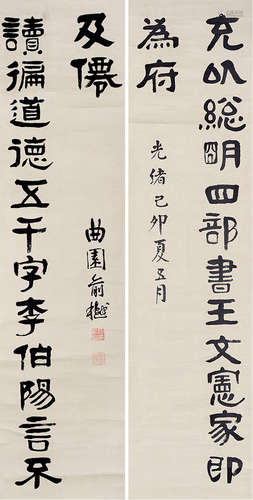 充㕥總朙四部書王文憲家即
為府
光緒己卯夏五月
讀徧道德五千字李伯陽言不
及僊
曲園俞樾